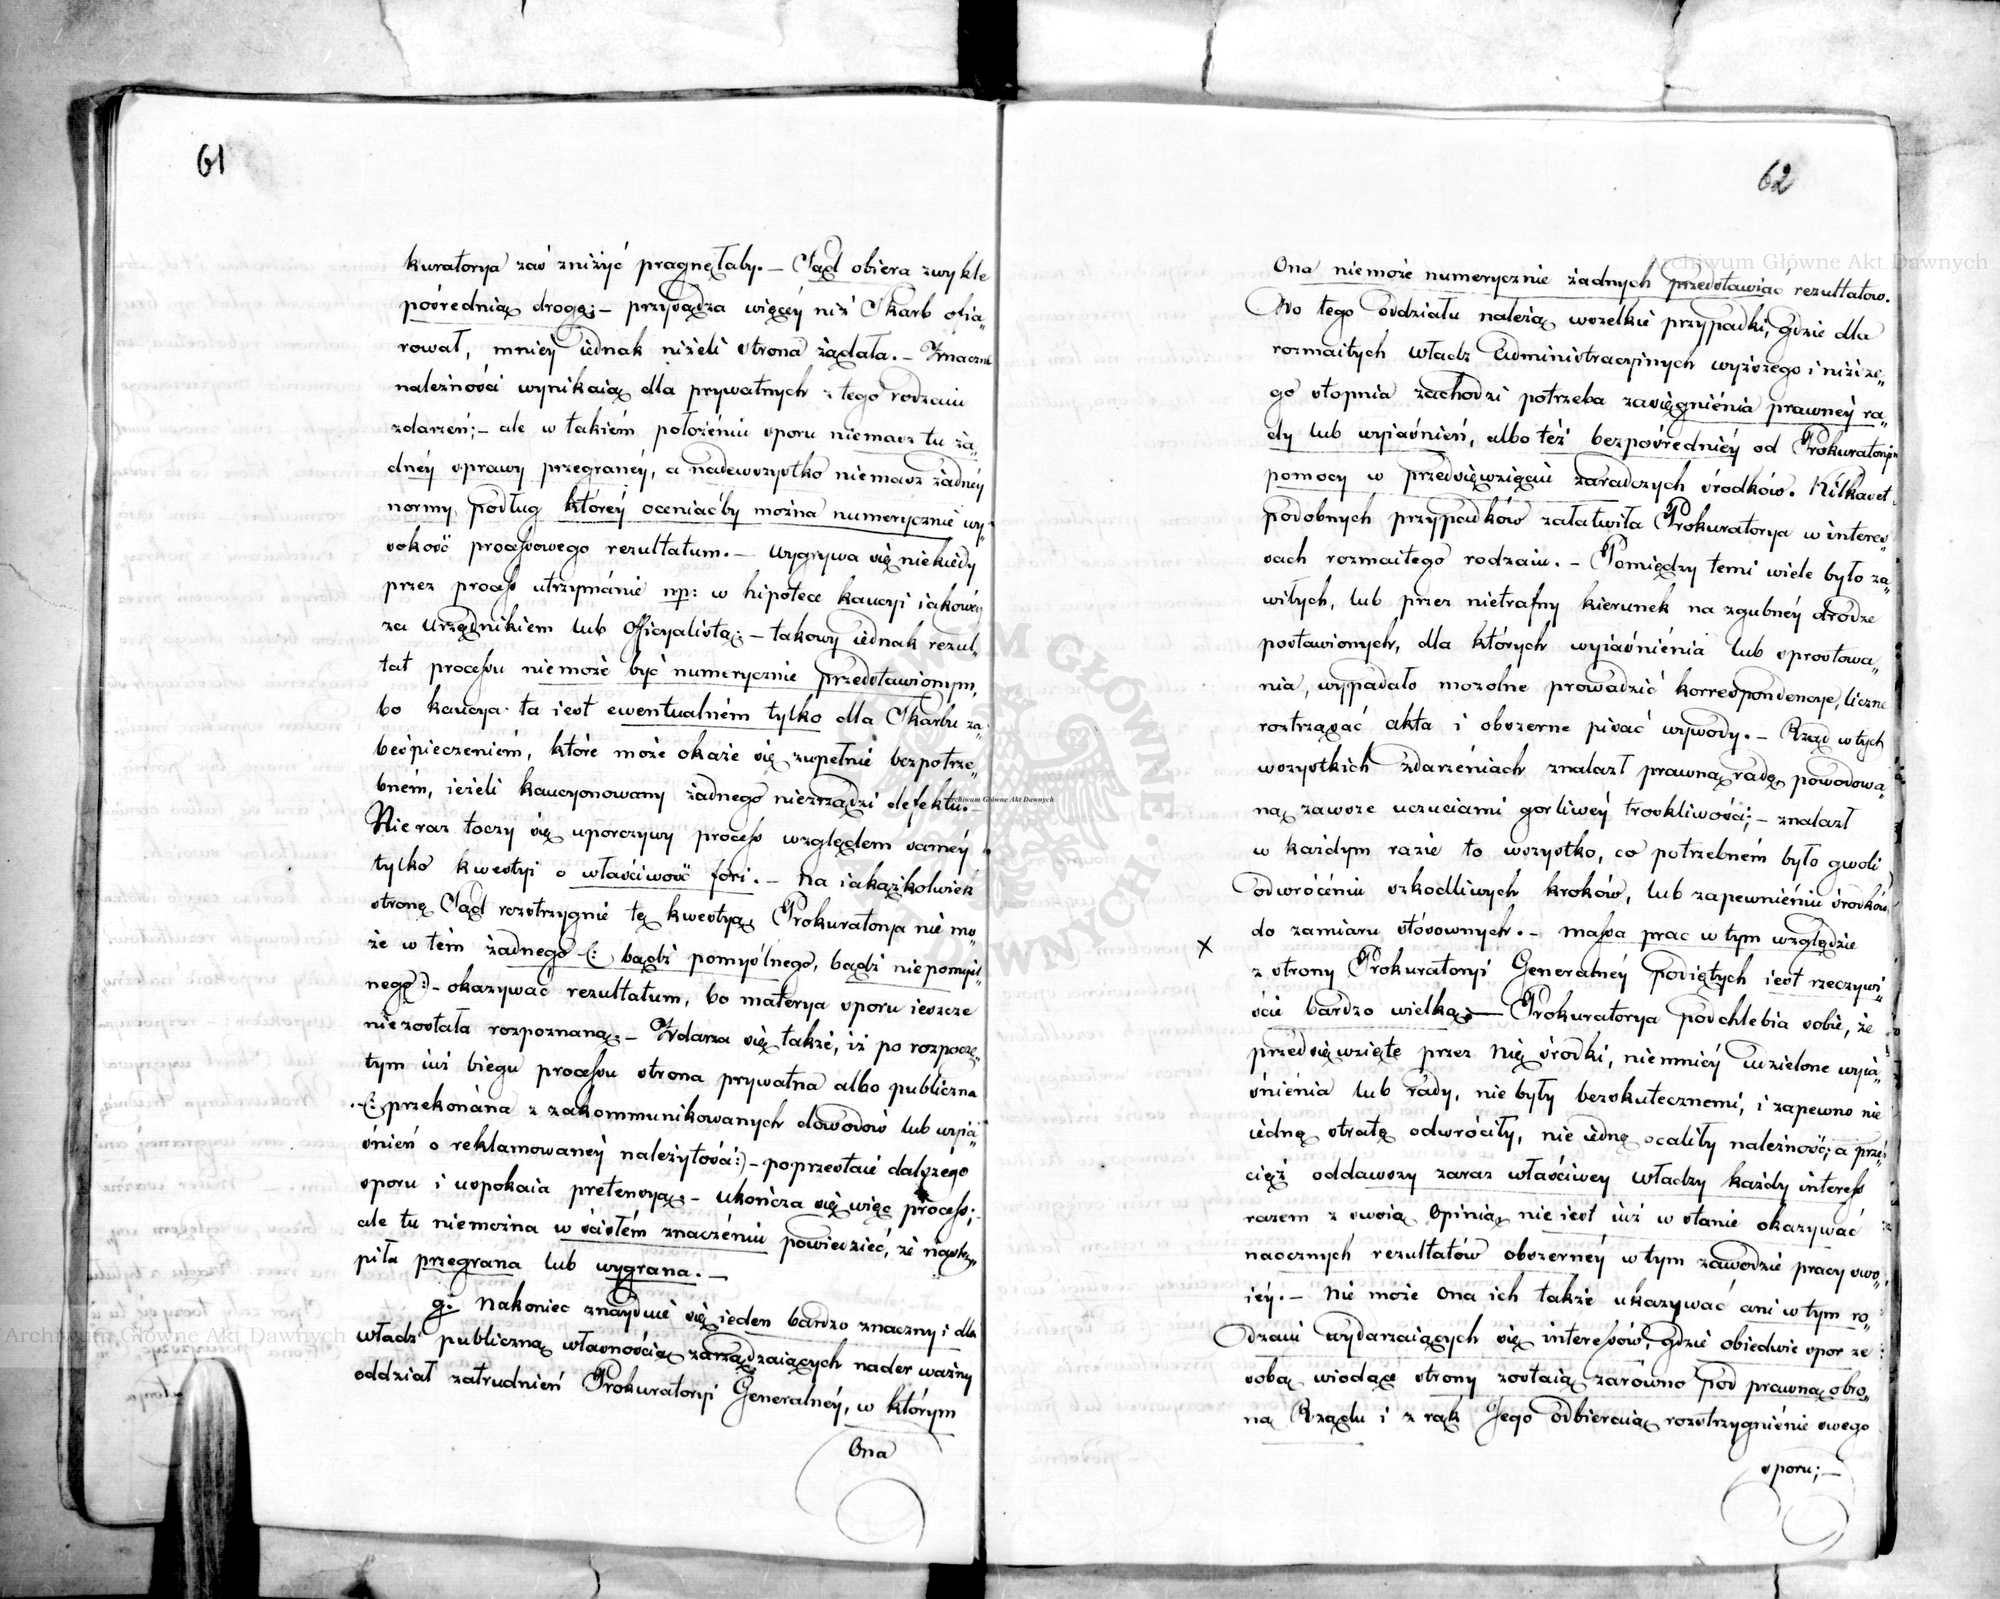 61
kuratorya zaś zniżyć pragnęłaby. – Sąd obiera zwykle
pośrednią drogę; – przysądza więcéy niż Skarb ofia„
rował, mniéy iednak niżeli strona żądała. – Znaczne
należności wynikaią dla prywatnych z tego rodzaiu
zdarzeń; – ale w takiém położéniu sporu niemasz tu ża„
dnéy sprawy przegranéy, a nadewszystko niemasz żadnéy
normy, podług któréy oceniaćby można numerycznie wy„
sokość processowego rezultatum. – Wygrywa się niekiedy
przez process utrzymánie np: w hipotece kaucyi iakowéy
za Urzędnikiem lub Officyalistą; – takowy iednak rezul„
tat processu niemoże być numerycznie przedstawionym,
bo kaucya ta iest ewentualném tylko dla Skarbu za„
beśpieczeniém, które może okaże się zupełnie bezpotrze„
bném, ieżeli kaucyonowany żadnego niezrządzi defektu.
Nieraz toczy się uporczywy process względem saméy
tylko kwestyi o właściwość fori. – Na iakążkolwiek
stronę Sąd rozstrzygnie tę kwestyą, Prokuratorya nie mo„
że w tém żadnego (: bądź pomyślnego, bądź niepomyśl„
nego :) – okazywać rezultatum, bo materya sporu ieszcze
niezostała rozpoznaną. – Zdarza się także, iż po rozpoczę„
tym iuż biegu processu strona prywatna albo publiczna
(: przekonána z zakommunikowanych dowodów lub wyia„
śnień o reklamowanéy należytości :) – poprzestaie dalszégo
sporu i uspokaia pretensyą; – ukończa się więc process; –
ale tu niemożna w ścisłém znaczéniu powiedzieć, że nastą„
piła przegrana lub wygrana. –
g: Nakoniec znayduie się ieden bardzo znaczny i dla
władz publiczną własnością zarządzaiących nader ważny
oddział zatrudnień Prokuratoryi Generalnéy, w którym
Ona
62
Ona niemoże numerycznie żadnych przedstawiać rezultatow.
Do tego oddziału należą wszelkie przypadki, gdzie dla
rozmaitych Władz Administracyinych wyższego i niższe„
go stopnia zachodzi potrzeba zasięgniénia prawnéy ra„
dy lub wyiaśnień, albo téż bezpośrednéy od Prokuratoryi
pomocy w przedsięwzięciu zaradczych środków. Kilkaset
podobnych przypadków załatwiła Prokuratorya w intere„
sach rozmaitego rodzaiu. – Pomiędzy temi wiele było za„
wiłych, lub przez nietrafny kierunek na zgubnéy drodze
postawionych, dla których wyiaśniénia lub sprostowa„
nia, wypadało mozolne prowadzić korrespondencye, liczne
roztrząsać akta i obszerne pisać wywody. – Rząd w tych
wszystkich zdarzéniach znalazł prawną radę, powodowa„
ną zawsze uczuciami gorliwéy troskliwości; – znalazł
w każdym razie to wszystko, co potrzebném było gwoli
odwrócéniu szkodliwych kroków, lub zapewniéniu środków
do zamiaru stósownych. – Massa prac w tym względzie
x
z strony Prokuratoryi Generalnéy podiętych iest rzeczywi„
ście bardzo wielką; — Prokuratorya podchlebia sobie, że
przedsięwzięte przez Nię środki, niemniéy udzielone wyia„
śniénia lub rady, nie były bezskutecznemi, i zapewno nie
iednę stratę odwróciły, nie iednę ocaliły należność; a prze„
cież oddawszy zaraz właściwey Władzy każdy interess
razem z swoią Opinią, nie iest iuż w stanie okazywać
naocznych rezultatów obszernéy w tym zawodzie pracy swo„
iéy. – Nie może Ona ich także ukazywać ani w tym ro„
dzaiu wydarzaiących się interessów, gdzie obiedwie spor ze
sobą wiodące strony zostaią zarówno pod prawną obro„
ną Rządu i z rąk Jego odbieraią rozstrzygniénie swego
sporu; –
Archiwum Główne Akt Dawnych
Archiwum Główne Akt Dawnych
Archiwum Główne Akt Dawnych